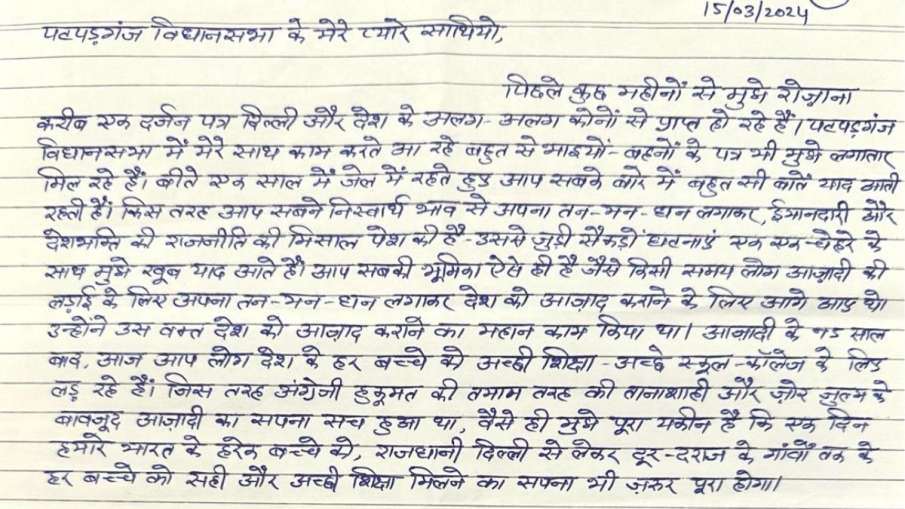 15/03/2024
पटपड़गंज विधानसभा के मेरे प्यारे साथियो,
पिछले कुछ महीनों से मुझे रोज़ाना
करीब एक दर्जन पत्र दिल्ली और देश के अलग-अलग कोनों से प्राप्त हो रहे हैं। पटपड़गंज
विधानसभा में मेरे साथ काम करते आ रहे बहुत से भाइयों-बहनों के पत्र भी मुझे लगातार
मिल रहे हैं। बीते एक साल में जेल में रहते हुए आप सबके बारे में बहुत सी बातें याद आती
रहती हैं। किस तरह आप सबने निस्वार्थ भाव से अपना तन-मन-धन लगाकर, ईमानदारी और
देशभक्ति की राजनीति की मिसाल पेश की है-उससे जुड़ी सैकड़ों घटनाएं एक एक-चेहरे के
साथ मुझे खूब याद आते हैं। आप सबकी भूमिका ऐसे ही है जैसे किसी समय लोग आज़ादी की
लड़ाई के लिए अपना तन-मन-धन लगाकर देश को आज़ाद कराने के लिए आगे आए थे।
उन्होंने उस वक्त देश को आज़ाद कराने का महान काम किया था। आजादी के ७५ साल
बाद, आज आप लोग देश के हर बच्चे को अच्छी शिक्षा-अच्छे स्कूल-कॉलेज के लिए
लड़ रहे हैं। जिस तरह अंग्रेजी हुकूमत की तमाम तरह की तानाशाही और ज़ोर ज़ुल्म के
बावजूद आज़ादी का सपना सच हुआ था, वैसे ही मुझे पूरा यकीन है कि एक दिन
हमारे भारत के हरेक बच्चे को, राजधानी दिल्ली से लेकर दूर-दराज के गांवों तक के
हर बच्चे को सही और अच्छी शिक्षा मिलने का सपना भी ज़रूर पूरा होगा।